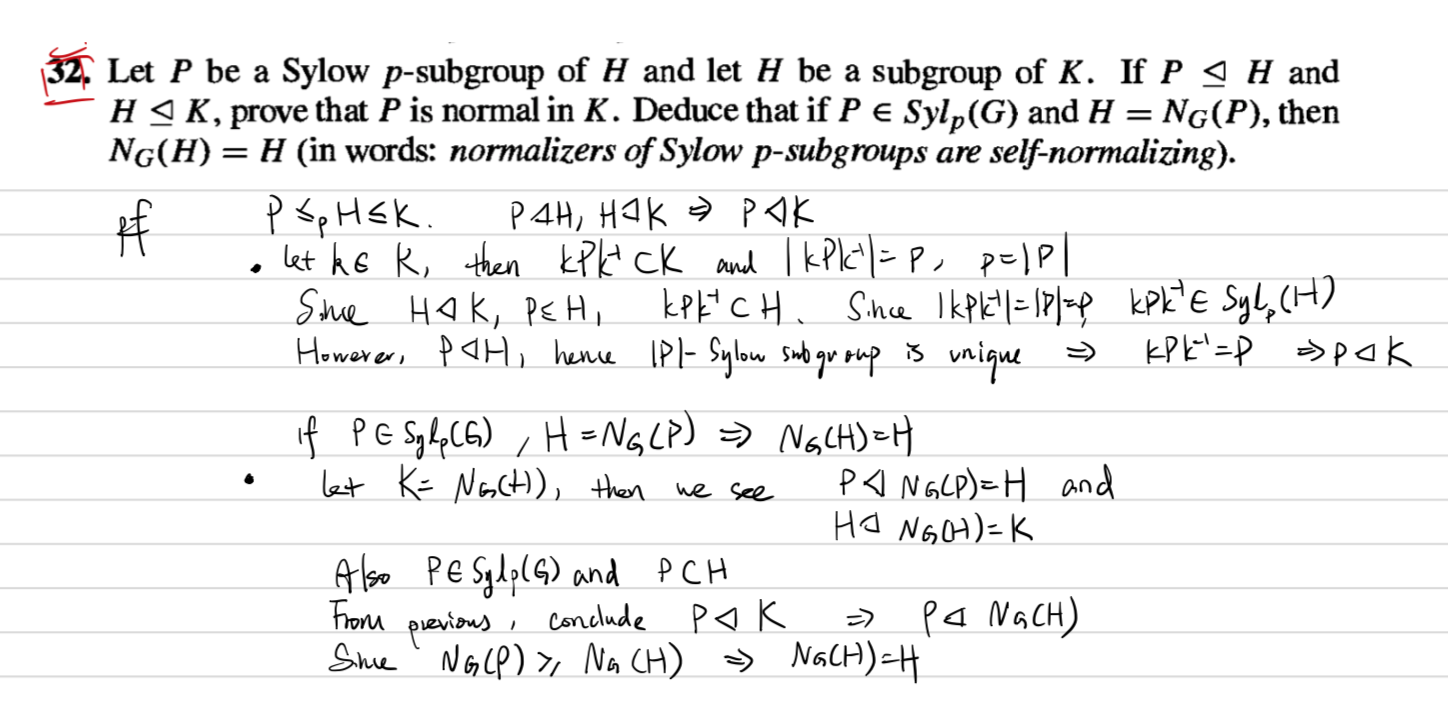 32. Let P be a Sylow p-subgroup of H and let H be a subgroup of K. If P ⊴ H and
H ⊴ K, prove that P is normal in K. Deduce that if P ∈ Syl_p(G) and H = N_G(P), then
N_G(H) = H (in words: normalizers of Sylow p-subgroups are self-normalizing).
pf P ≤_p H ≤ K. P⊲H, H⊲K ⇒ P⊲K
• let k∈ K, then kPk⁻¹ ⊂ K and |kPk⁻¹| = P, p=|P|
Since H⊲K, P≤H, kPk⁻¹ ⊂ H. Since |kPk⁻¹|=|P|=p, kPk⁻¹∈ Syl_p(H)
However, P⊲H, hence |P|- Sylow subgroup is unique ⇒ kPk⁻¹=P ⇒ P⊲K
if P∈ Syl_p(G), H = N_G(P) ⇒ N_G(H)=H
• let K= N_G(H), then we see P⊲ N_G(P)=H and
H⊲ N_G(H)=K
Also P∈ Syl_p(G) and P⊂H
From previous, conclude P⊲K ⇒ P⊲ N_G(H)
Since N_G(P) ≥ N_G(H) ⇒ N_G(H)=H